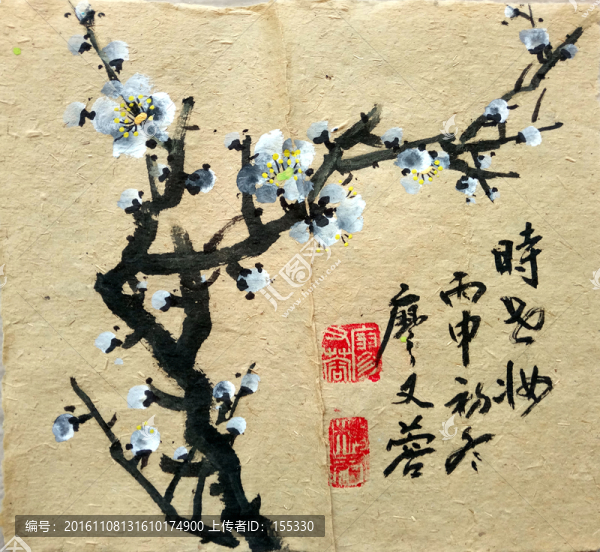 時世妝
丙申初冬
廖又蓉
编号：20161108131610174900 上传者ID：155330